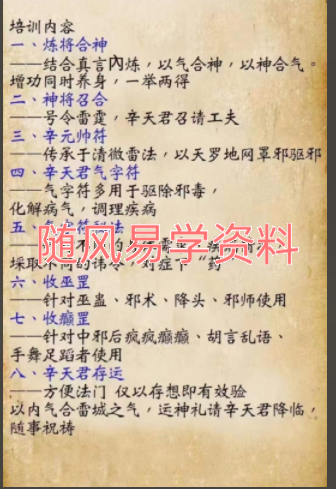 培训内容
一、炼将合神
——结合真言內炼，以气合神，以神合气。
增功同时养身，一举两得
二、神将召合
——号令雷霆，辛天君召请工夫
三、辛元帅符
——传承于清微雷法，以天罗地网罩邪驱邪
四、辛天君气字符
——气字符多用于驱除邪毒，
化解病气，调理疾病
五、
随风易学资料
採取不同的讳令，对症下“药
六、收巫罡
——针对巫蛊、邪术、降头、邪师使用
七、收癫罡
——针对中邪后疯疯癫癫、胡言乱语、
手舞足蹈者使用
八、辛天君存运
——方便法门 仅以存想即有效验
以内气合雷城之气，运神礼请辛天君降临，
随事祝祷